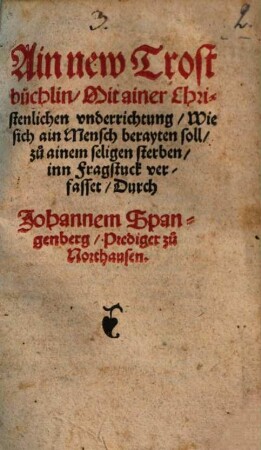 3.
2.
Ain new Trost
büchlin / Mit ainer Chri-
stenlichen vnderrichtung / Wie
sich ain Mensch berayten soll /
zů ainem seligen sterben /
inn Fragstuck ver-
fasset / Durch
Johannem Span-
genberg / Prediger zů
Northausen.